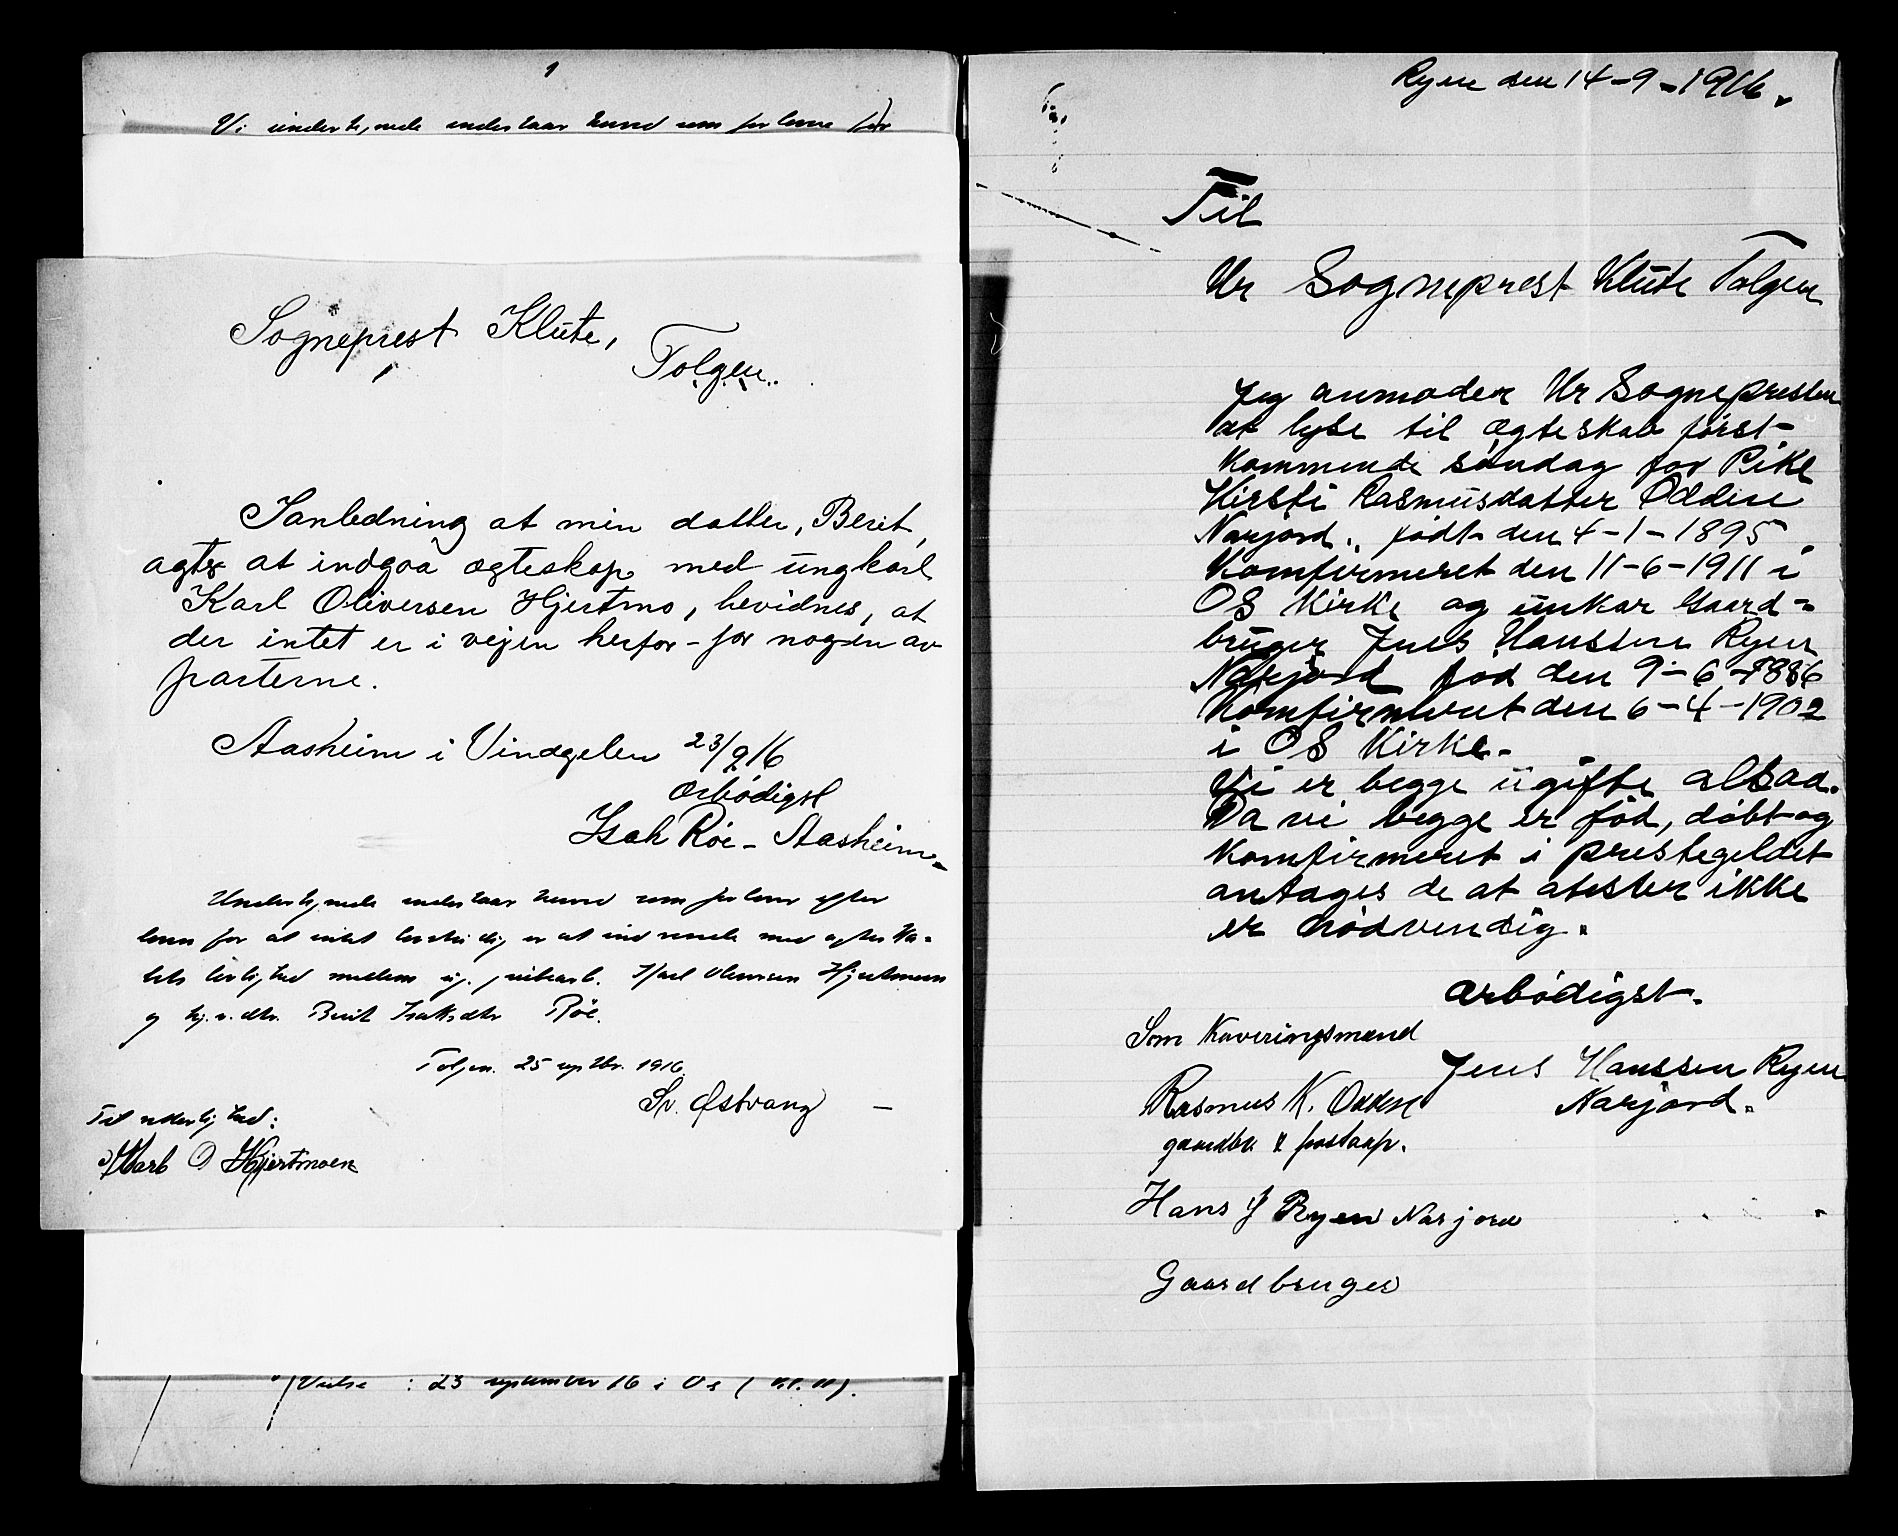 1
Vi undertegnede indestaar herved som forlover for
Sogneprest Klüte,
Tolgen.
Ianledning at min datter, Berit,
agter at indgaa ægteskap med ungkarl
Karl Oliversen Hjertmo, bevidnes, at
der intet er i vejen herfor - for nogen av
parterne.
Aasheim i Vindgelen 23/9 16
Ærbödigst
Isak Röe - Aasheim
Undertegnede indestaar herved som forlover efter
loven for at intet er at indvende med
mellem ug. Karl Oliversen Hjertmoen
og Berit Isaksdtr Röe.
Tolgen 25 septbr. 1916.
Sv. Østvang
Til vitterlighed:
Karl O Hjertmoen
Vielse : 23 september 16 i Os (
Ryen den 14-9-1916.
Til
Hr Sogneprest Klüte Tolgen
Jeg anmoder Hr Sognepresten
at lyse til ægteskab först-
kommende söndag for Pike
Kirsti Rasmusdatter Odden
Narjord, födt den 4-1-1895
Komfirmeret den 11-6-1911 i
OS Kirke og ünkar Gaard-
brüger Jens Hanssen Ryen
Narjord föd den 9-6-1886
Komfirmeret den 6-4-1902
i OS Kirke.
Vi er begge ügifte altsaa.
Da vi begge er föd, döbt og
Komfirmeret i prestegeldet
antages de at atester ikke
er nödvendig.
ærbödigst.
Som Kaveringsmænd
Jens Hanssen Ryen
Narjord.
Rasmus K. Odden
gaardbr & postaapr.
Hans J Ryen Narjord
Gaardbruger